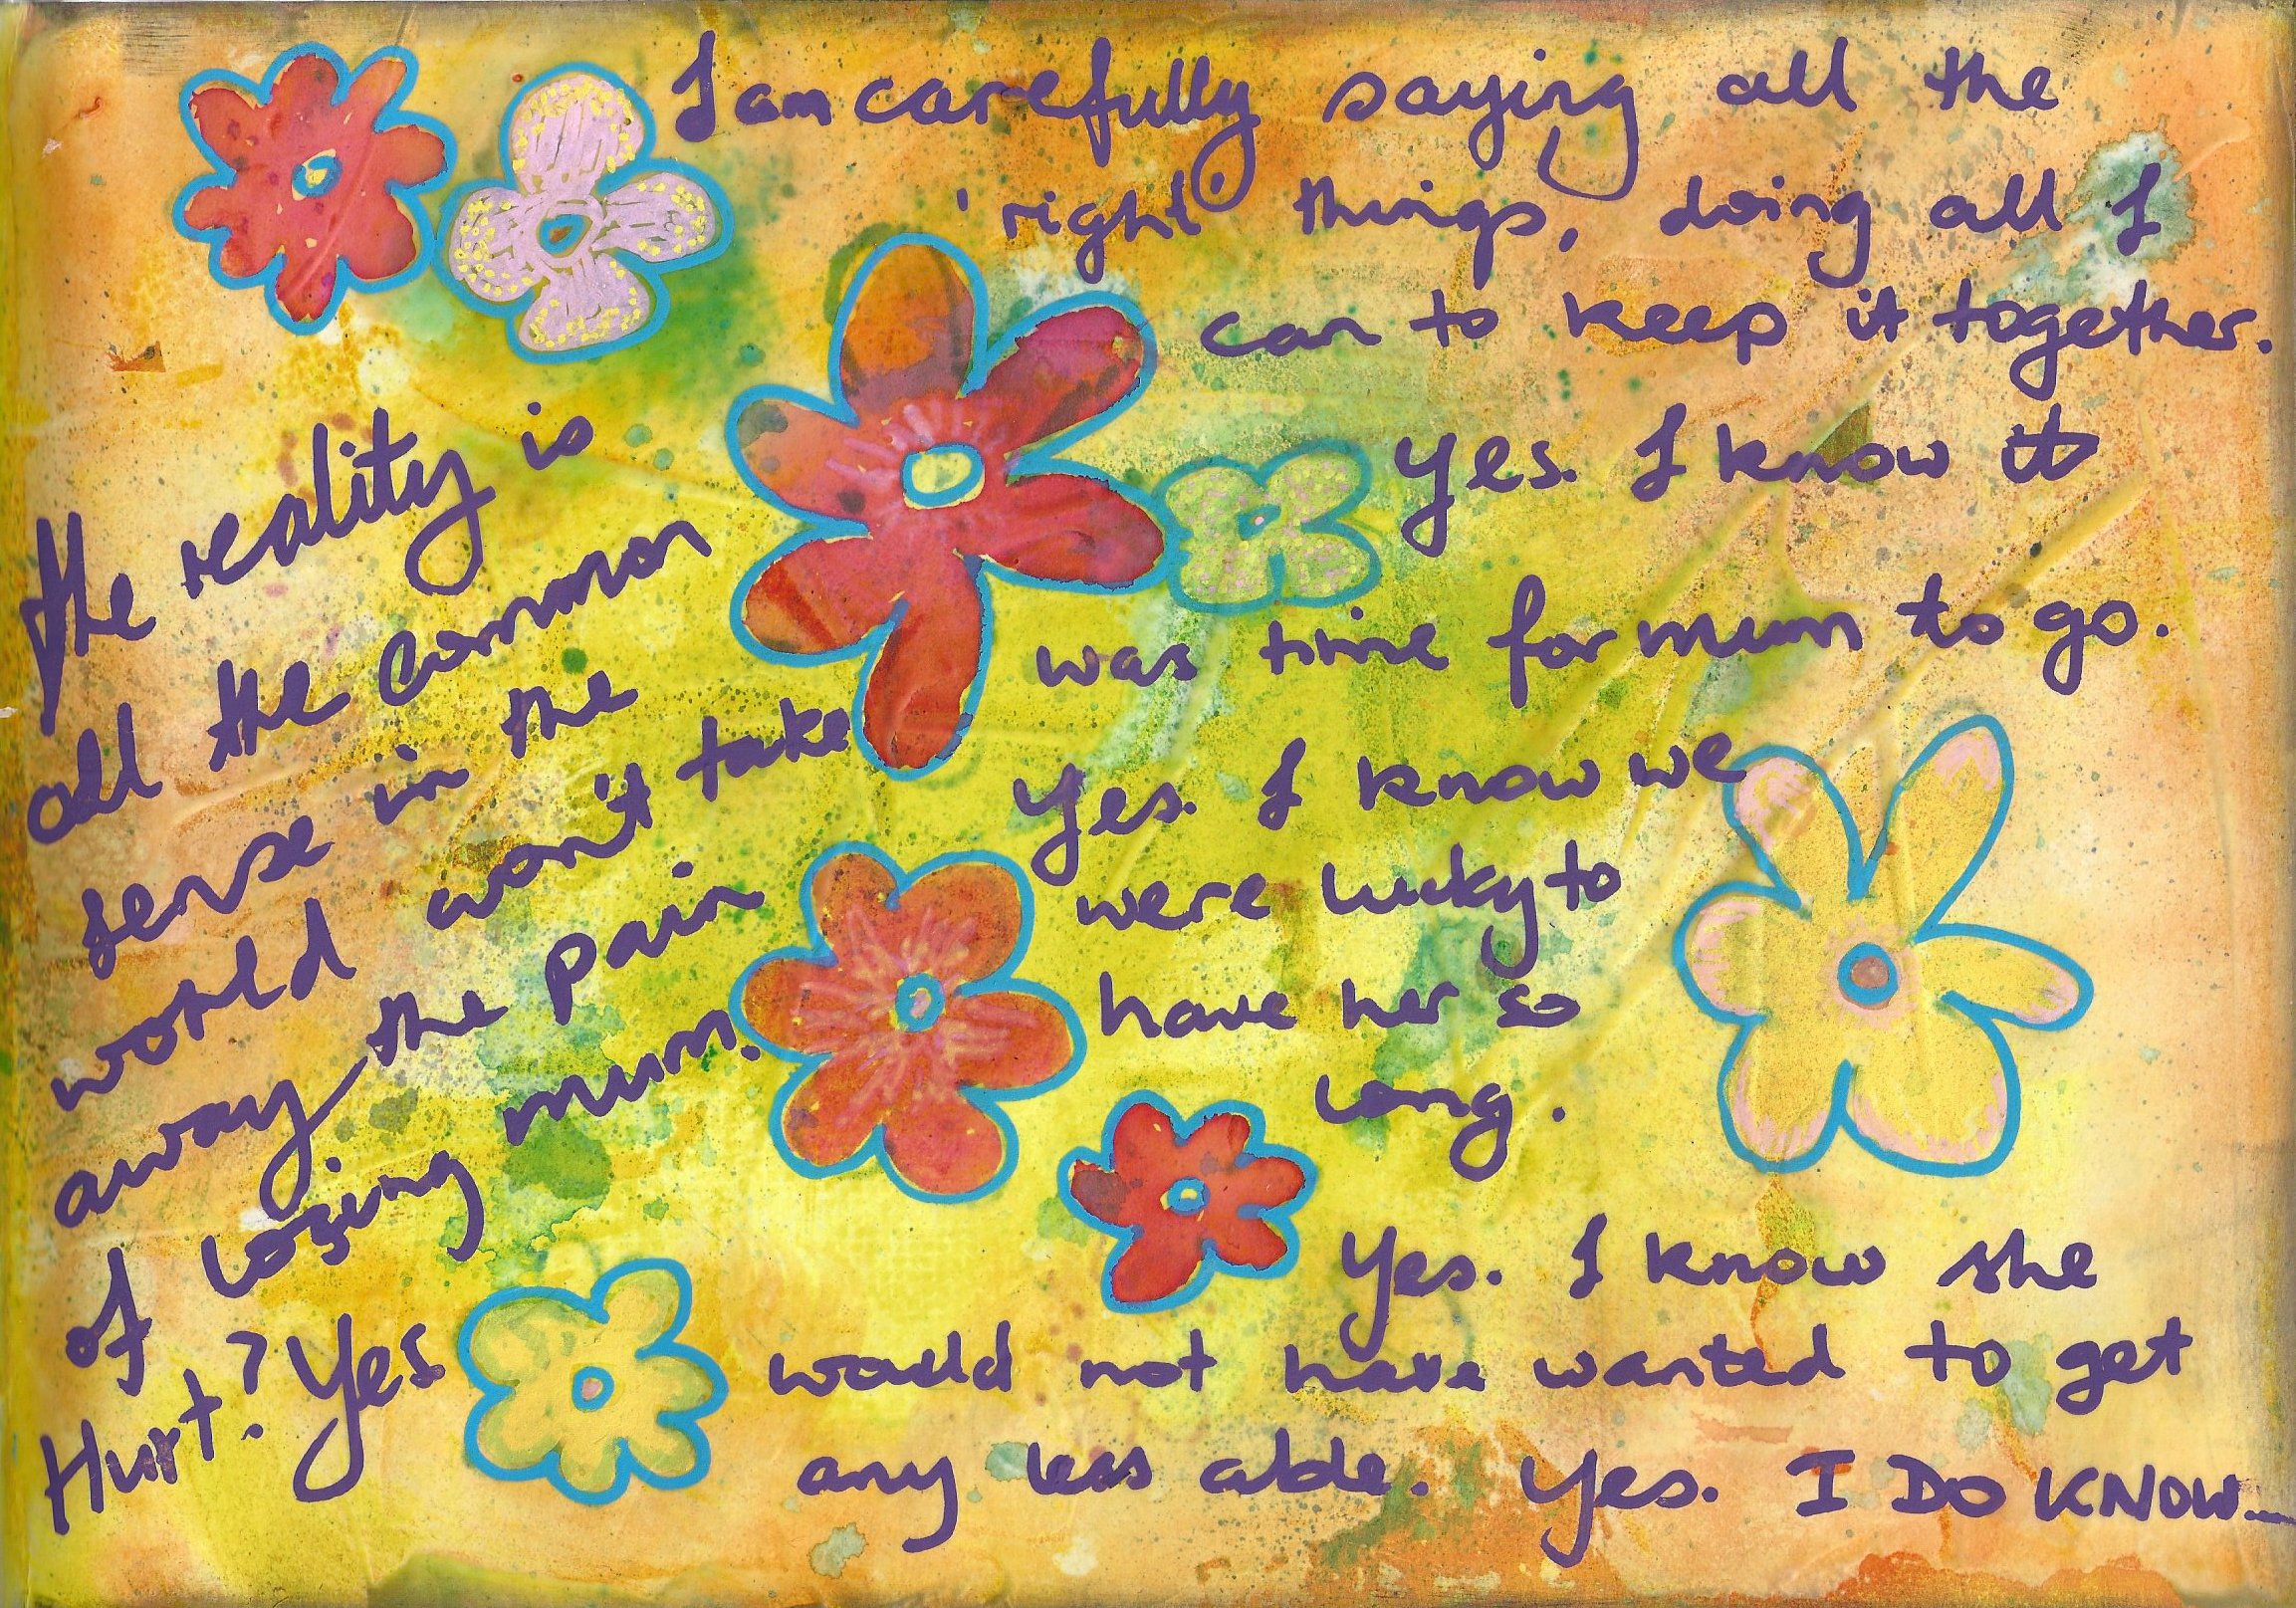 I am carefully saying all the
'right' things, doing all I
can to keep it together.
Yes. I know it
was time for mum to go.
Yes. I know we
were lucky to
have her so
long.
Yes. I know she
would not have wanted to get
any less able. Yes. I DO KNOW...
The reality is
all the common
sense in the
world won't take
away the pain
of losing mum.
Hurt? Yes